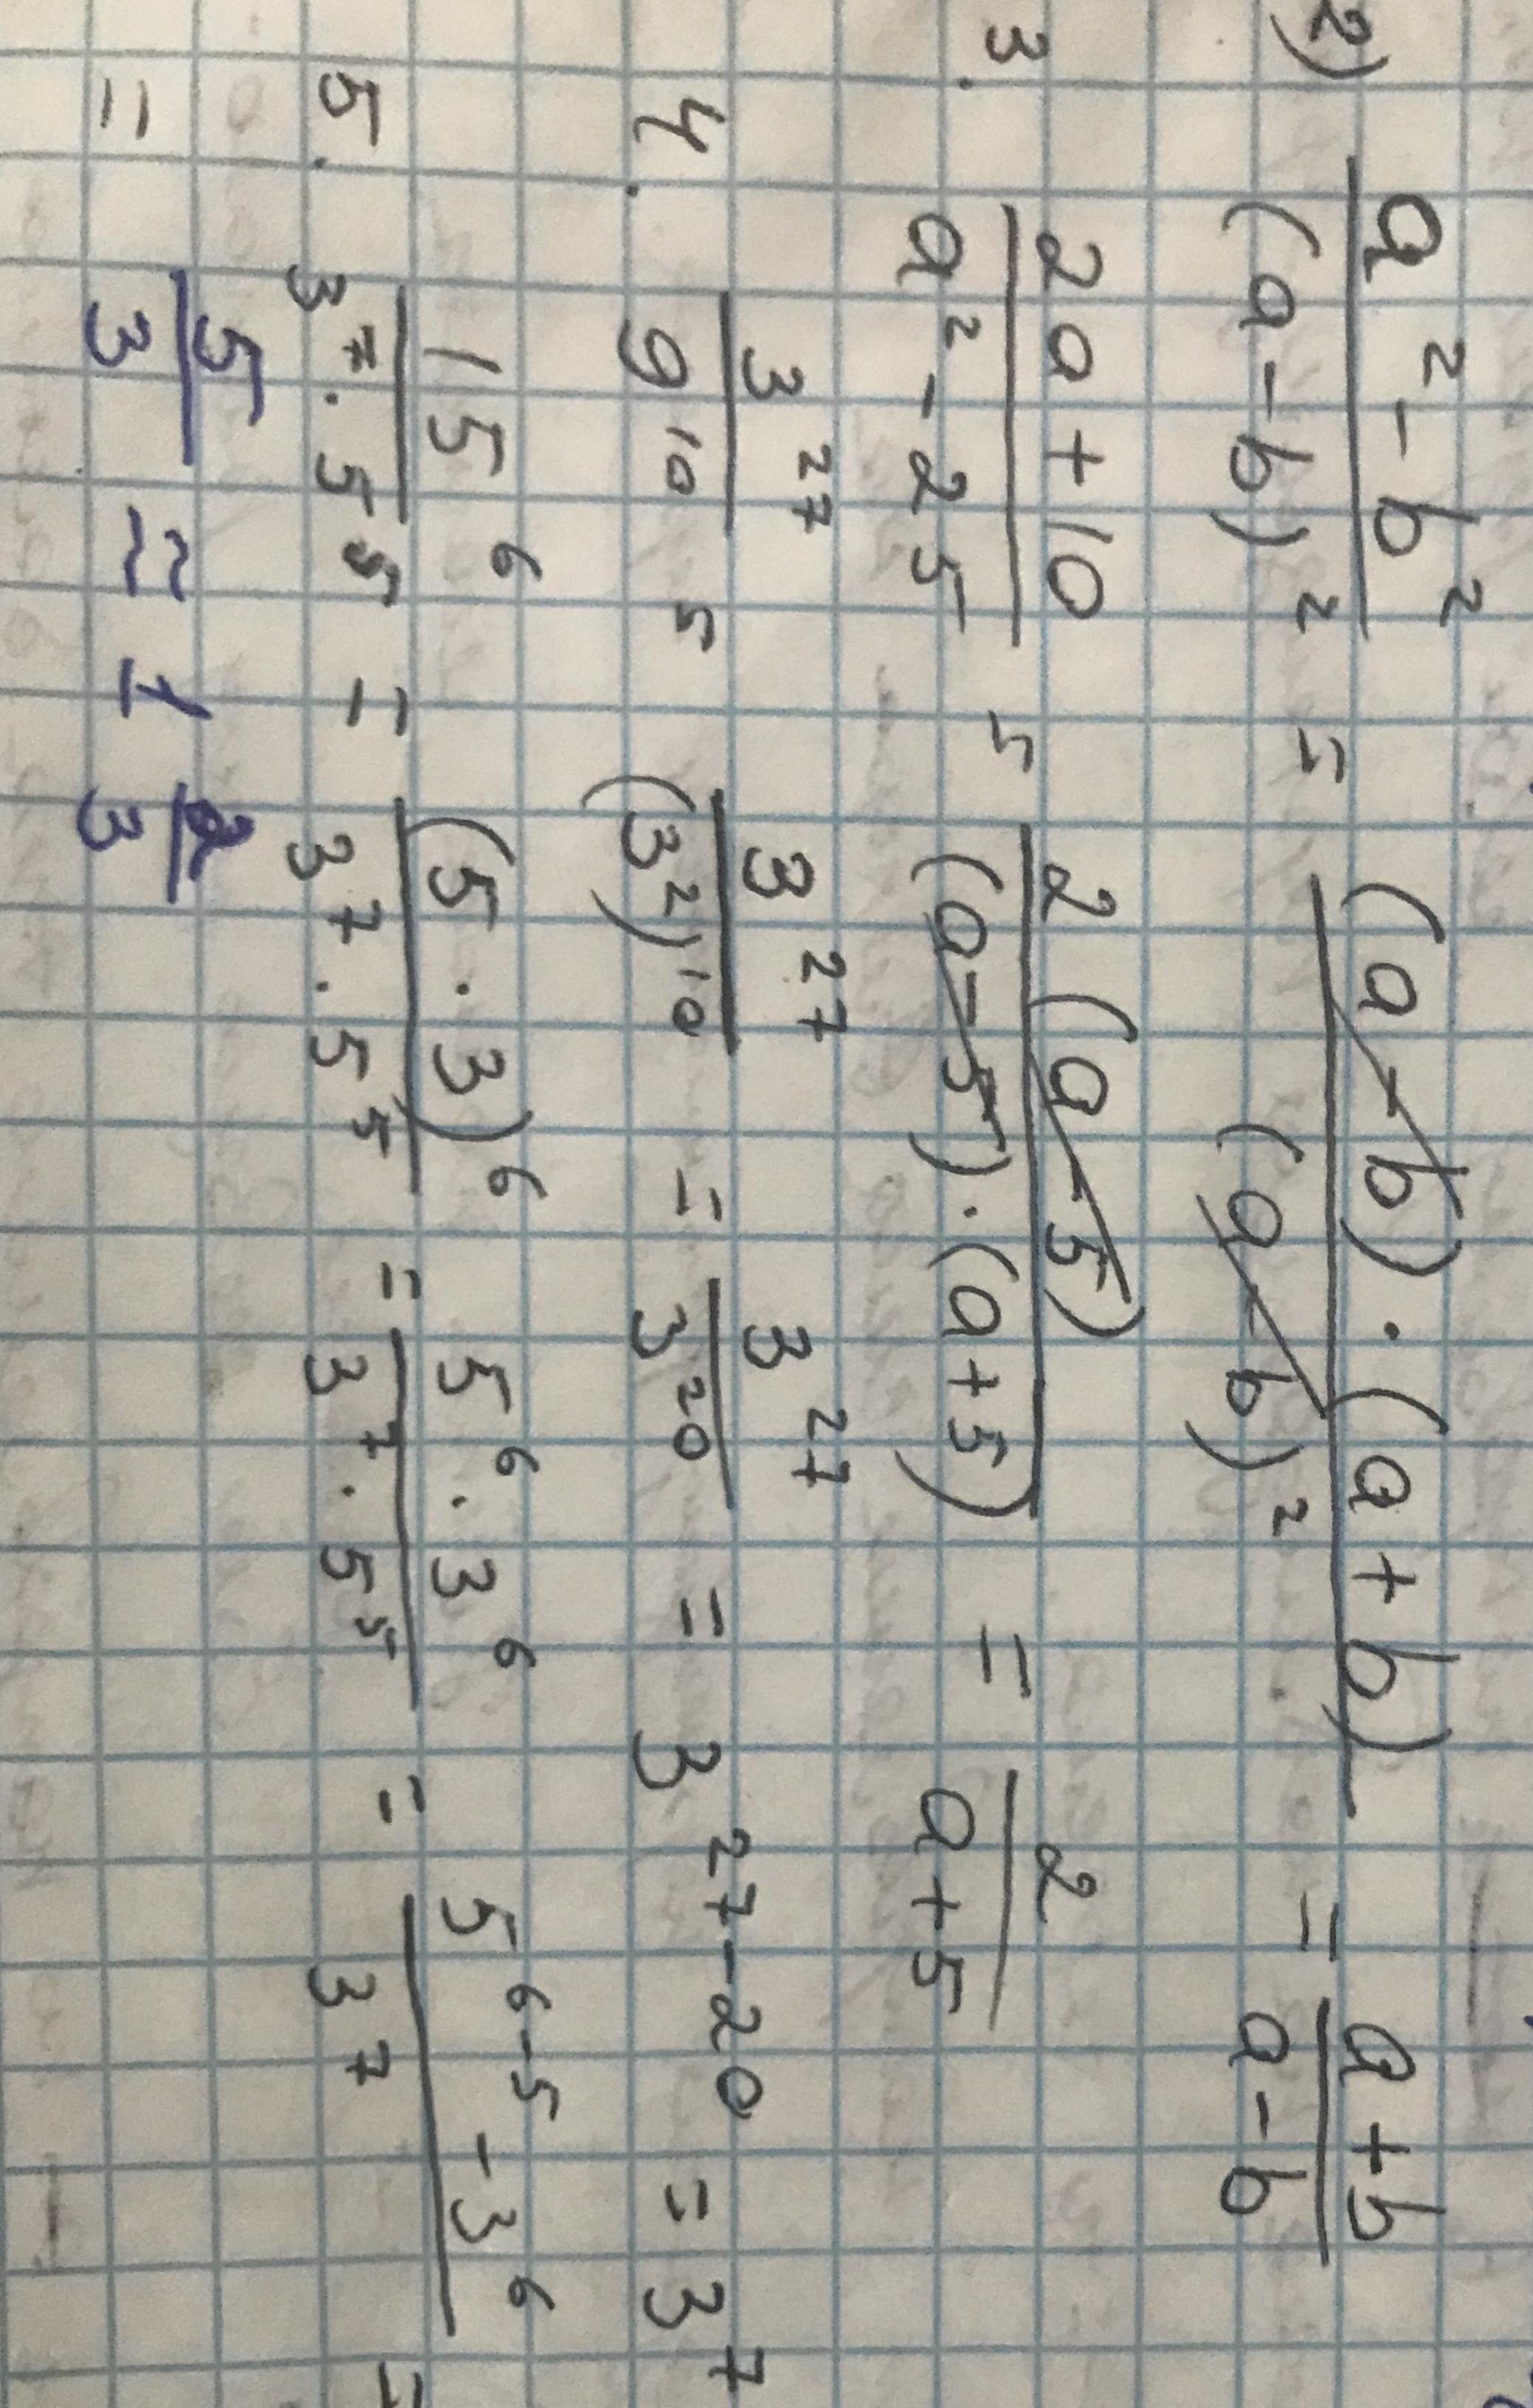 2) (a² - b²)/(a - b)² = ((a - b) · (a + b))/(a - b)² = (a + b)/(a - b)
3. (2a + 10)/(a² - 25) = (2(a - 5))/((a - 5) · (a + 5)) = 2/(a + 5)
4. 3²⁷/9¹⁰ = 3²⁷/(3²)¹⁰ = 3²⁷/3²⁰ = 3²⁷⁻²⁰ = 3⁷
5. 15⁶/(3⁷ · 5⁵) = (5 · 3)⁶/(3⁷ · 5⁵) = (5⁶ · 3⁶)/(3⁷ · 5⁵) = (5⁶⁻⁵ - 3⁶)/3⁷ =
= 5/3 ≈ 1 2/3